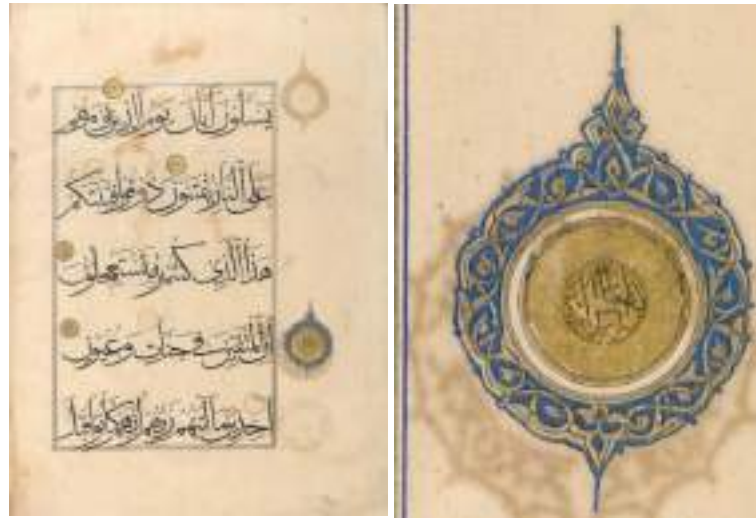 يسلون أيان يوم الدين يوم هم
على النار يفتنون ذوقوا فتنتكم
هذا الذي كنتم به تستعجلون
ان المتقين في جنات وعيون
اخذين ما آتيهم ربهم إنهم كانوا قبل